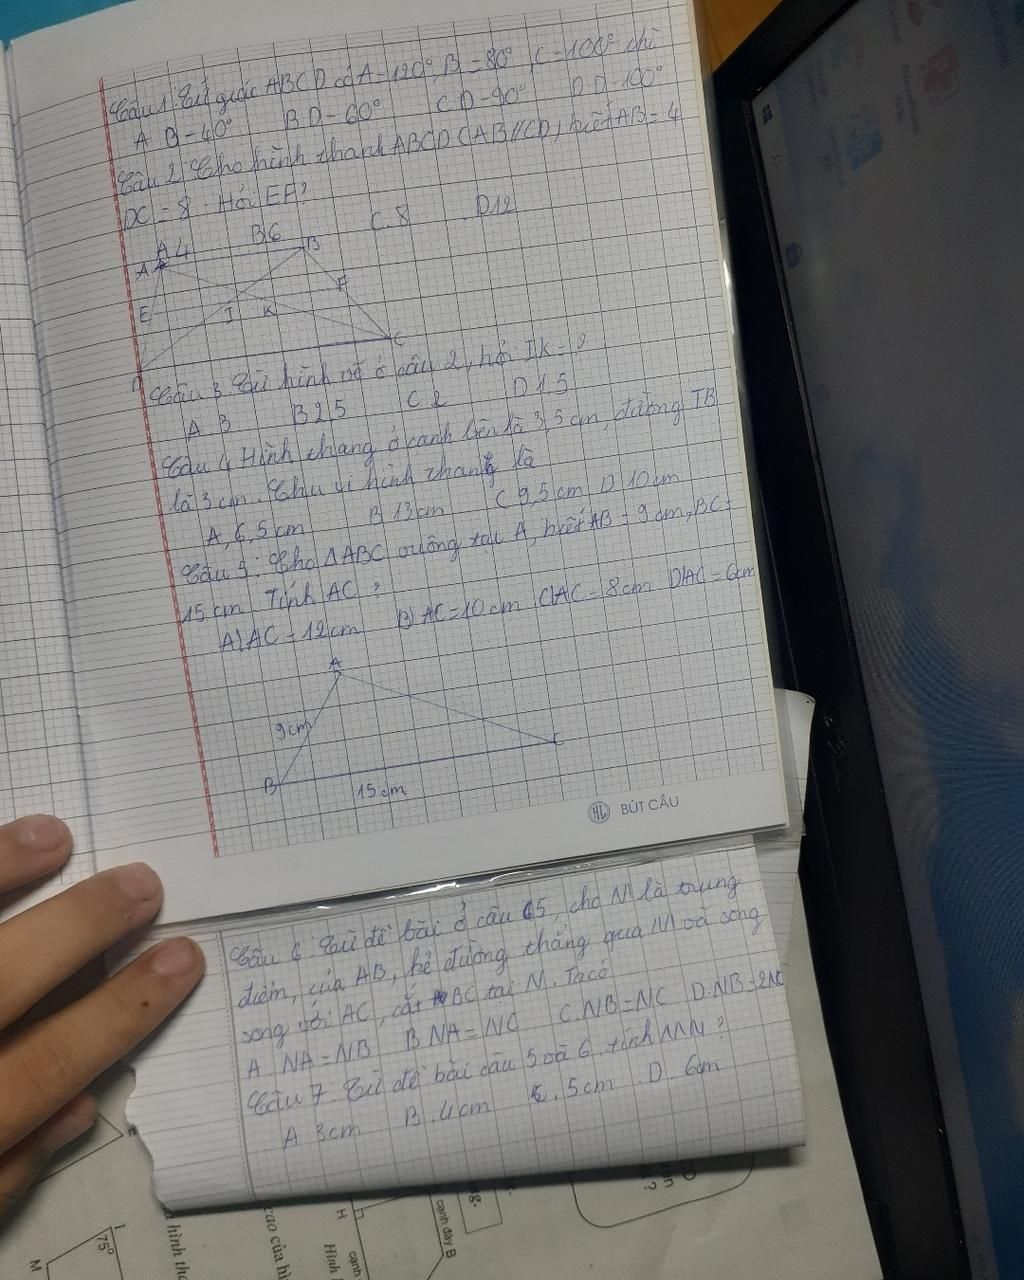 Câu 1. Tứ giác ABCD có A = 120°, B = 80°, C = 100° thì
A. D = 40° B D = 60° C D = 90° D D = 100°
Câu 2: Cho hình thang ABCD (AB//CD) biết AB = 4
DC = 8. Hỏi EF?
A 4 B 6 C. 8 D 12
A B
E F
I K
D C
Câu 3. Từ hình vẽ ở câu 2, hỏi IK = ?
A 3 B 2,5 C. 2 D 1.5
Câu 4 Hình thang có cạnh bên là 3,5 cm, đường TB
là 3 cm. Chu vi hình thang là
A, 6,5 cm B 13 cm C 9,5 cm D 10 cm
Câu 5: Cho ΔABC vuông tại A, biết AB = 9 cm, BC =
15 cm. Tính AC ?
A) AC = 12 cm B) AC = 10 cm C) AC = 8 cm D) AC = 6cm
A
9cm
B C
15 cm
HL BÚT CẦU
Câu 6: Từ đề bài ở câu 5, cho M là trung
điểm của AB, kẻ đường thẳng qua M và song
song với AC, cắt BC tại N. Ta có
A. NA = NB B. NA = NC C. NB = NC D. NB = 2NC
Câu 7. Từ đề bài câu 5 và 6. tính MN ?
A 3cm B. 4cm C. 5cm D. 6cm
E
I
75°
M
cao của hì
H
Hình
cạnh
cạnh đáy B
ng.
?